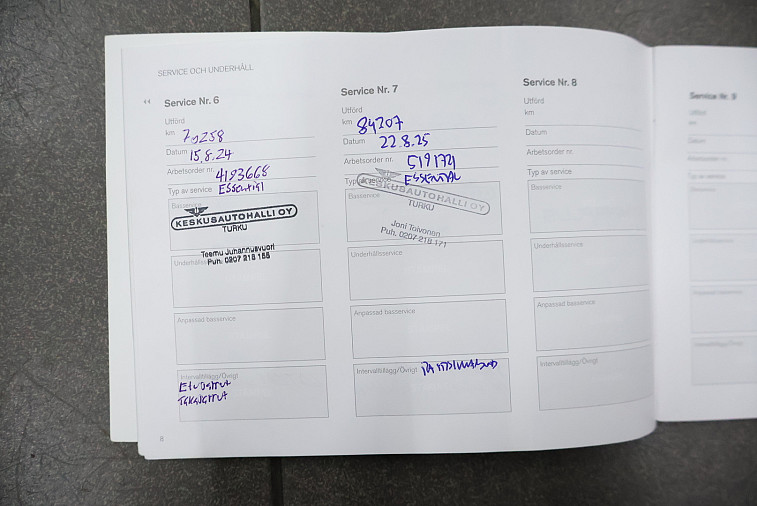 SERVICE OCH UNDERHÅLL
Service Nr. 6
Utförd
km
Datum 15.8.24
Arbetsorder nr. 4193668
Typ av service ESSENTIAL
Basservice
KESKUSAUTOHALLI OY
TURKU
Teemu Juhannusvuori
Puh. 0207 218 155
Underhållsservice
Anpassad basservice
Intervalltillägg/Övrigt
ETUJARRUT
TAKAJARRUT
8
Service Nr. 7
Utförd
km 84207
Datum 22.8.25
Arbetsorder nr. 519174
Typ av service ESSENTIAL
Basservice
KESKUSAUTOHALLI OY
TURKU
Joni Toivonen
Puh. 0207 218 171
Underhållsservice
Anpassad basservice
Intervalltillägg/Övrigt
Service Nr. 8
Utförd
km
Datum
Arbetsorder nr.
Typ av service
Basservice
Underhållsservice
Anpassad basservice
Intervalltillägg/Övrigt
Service Nr. 9
Utförd
km
Datum
Arbetsorder nr.
Typ av service
Basservice